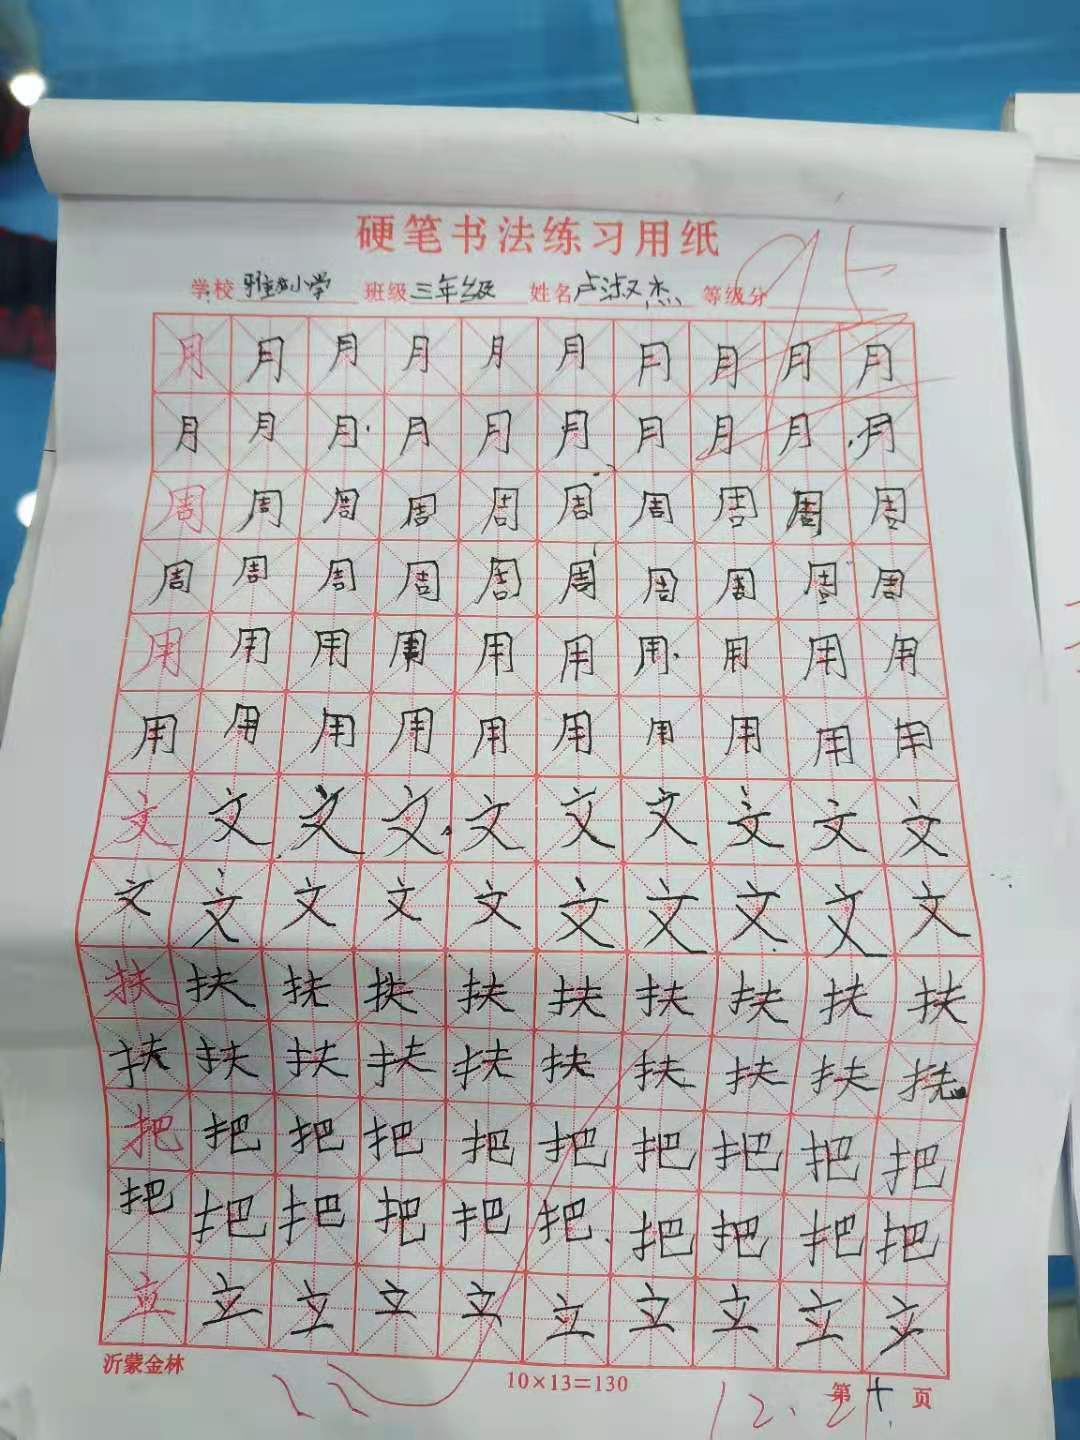 硬笔书法练习用纸
学校 雅文小学 班级 三年级 姓名 卢淑杰 等级分 95
月月月月月月月月月月
月月月月月月月月月月
周周周周周周周周周周
周周周周周周周周周周
用用用用用用用用用用
用用用用用用用用用用
文文文文文文文文文文
文文文文文文文文文文
扶扶扶扶扶扶扶扶扶扶
扶扶扶扶扶扶扶扶扶扶
把把把把把把把把把把
把把把把把把把把把把
立立立立立立立立立立
沂蒙金林 10×13=130 第十页
12.21